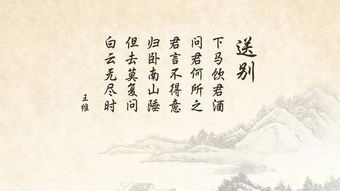 送别
下马饮君酒
问君何所之
君言不得意
归卧南山陲
但去莫复问
白云无尽时
王维